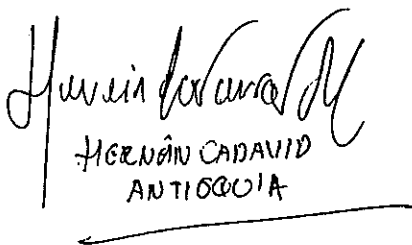 HERNÁN CADAVID
ANTIOQUIA